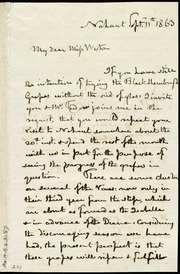 Nahant Sept. 11th 1863
My dear Miss Weston
If you have still
the intention of trying the Black Hamburgh
Grapes without the aid of glass I invite
you & Mr. to join me in the
request, that you would repeat your
visit to Nahant somewhere about the
20th inst. & spend the rest of the month
with us in part for the purpose of
seeing the progress of the grapes in
question. There are some clusters
on several of the Vines now only in
their third year from the slips which
are about as forward as the Isabella
& in advance of the Diana. Considering
the discouraging season we have
had, the present prospect is that
these grapes will ripen & fulfill